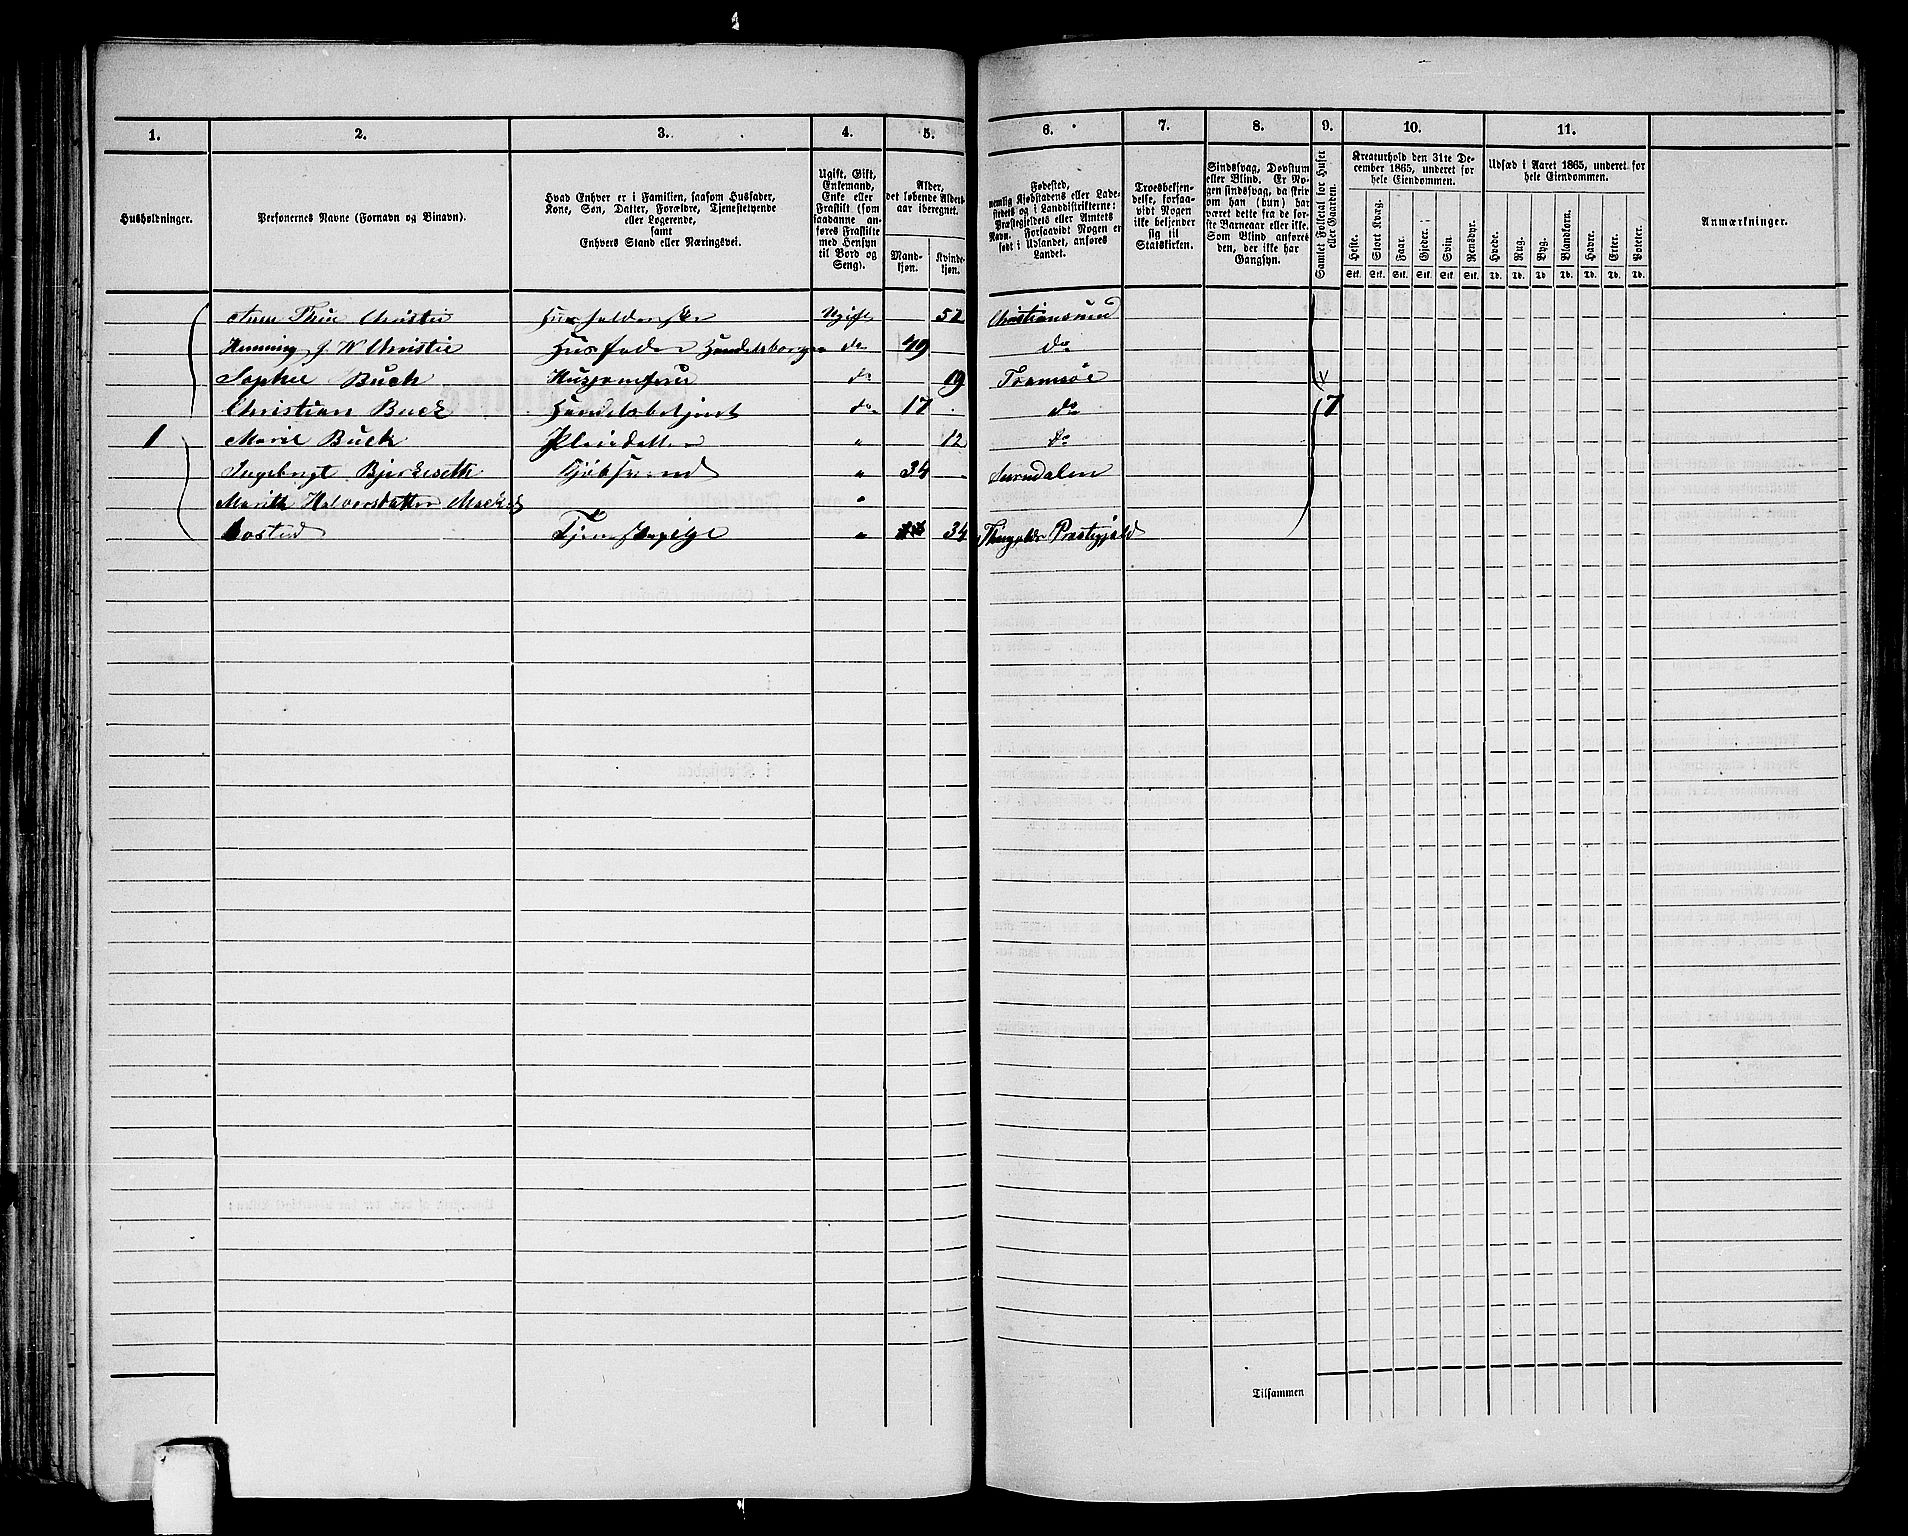 1. 2. 3. 4. 5. 6. 7. 8. 9. 10. 11.
Husholdninger.
Personernes Navne (Fornavn og Binavn).
Hvad Enhver er i Familien, saasom Husfader,
Kone, Søn, Datter, Forældre, Tjenestetyende
eller Logerende,
samt
Enhvers Stand eller Næringsvei.
Ugift, Gift,
Enkemand,
Enke eller
Fraskilt (som
saadanne an-
føres Fraskilte
med Hensyn
til Bord og
Seng).
Alder,
det løbende Alders-
aar iberegnet.
Mand-
kjøn.
Kvinde-
kjøn.
Fødested,
nemlig Kjøbstadens eller Lade-
stedets og i Landdistrikterne:
Præstegjeldets eller Amtets
Navn. Forsaavidt Nogen er
født i Udlandet, anføres
Landet.
Troesbekjen-
delse, forsaa-
vidt Nogen
ikke bekjender
sig til
Statskirken.
Sindssvag, Døvstum
eller Blind. Er No-
gen sindssvag, da skri-
ves om han (hun) har
været dette fra de før-
ste Barneaar eller ikke.
Som Blind anføres
den, der ikke har
Gangsyn.
Samlet Folketal for Huset
eller Gaarden.
Kreaturhold den 31te De-
cember 1865, underet for
hele Eiendommen.
Heste. Stort Kvæg. Faar. Gjeder. Svin. Rensdyr.
Stk. Stk. Stk. Stk. Stk. Stk.
Udsæd i Aaret 1865, underet for
hele Eiendommen.
Hvede. Rug. Byg. Blandkorn. Havre. Erter. Poteter.
Td. Td. Td. Td. Td. Td. Td.
Anmærkninger.
Christie Husholderske Ugift 52 Christiansund
Henning J. W Christie Husfader Handelsborger do 49 do
Sophie Buck Husjomfru do 19 Tromsøe
Christian Buck Handelsbetjent do 17 do 7
1 Marie Buck Pleiedatter " 12 do
Ingebrigt Bjerkeseth " 34 Surendalen
Marith Halvorsdatter "
Tjenestepige " 34 Præstegjeld
Tilsammen